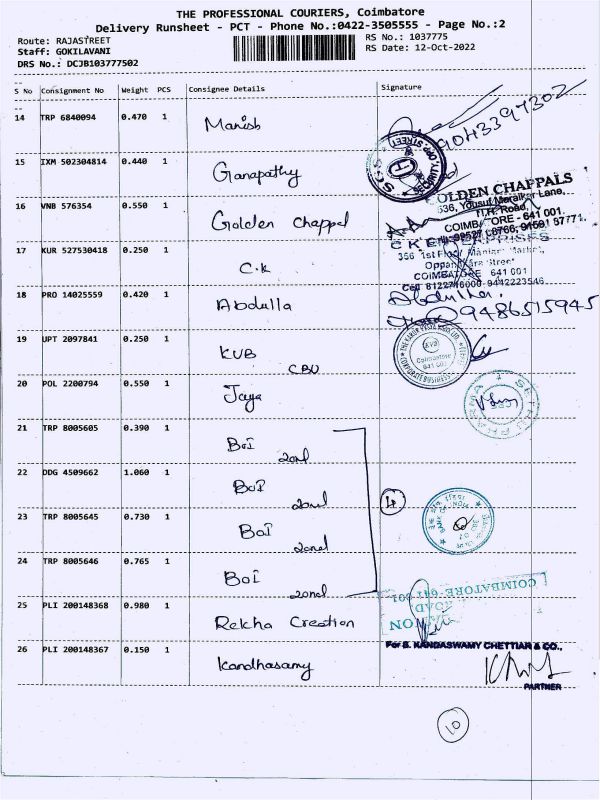 THE PROFESSIONAL COURIERS, Coimbatore
Delivery Runsheet - PCT - Phone No.:0422-3505555 - Page No.:2
Route: RAJASTREET
Staff: GOKILAVANI
DRS No.: DCJB103777502
RS No.: 1037775
RS Date: 12-Oct-2022
S No Consignment No Weight PCS Consignee Details Signature
14 TRP 6840094 0.470 1 Manish 9043397302
15 IXM 502304814 0.440 1 Ganapathy
16 VNB 576354 0.550 1 Golden Chappel
GOLDEN CHAPPALS
636, Yousuf Maraikar Lane,
H.H. Road,
COIMBATORE - 641 001.
17 KUR 527530418 0.250 1 C.K
C K ENTERPRISES
356 1st Floor
COIMBATORE 641 001
18 PRO 14025559 0.420 1 Abdulla
9486515945
19 UPT 2097841 0.250 1 KVB CBU
KVB
Coimbatore
641 001
20 POL 2200794 0.550 1 Jaya
21 TRP 8005605 0.390 1 BoI 2ond
22 DDG 4509662 1.060 1 BoI 2ond
4
23 TRP 8005645 0.730 1 BoI 2ond
BANK OF INDIA
24 TRP 8005646 0.765 1 BoI 2ond
25 PLI 200148368 0.980 1 Rekha Creation
COIMBATORE-641 001
ROAD
26 PLI 200148367 0.150 1 Kandhasamy
For B. KANDASWAMY CHETTIAR & CO.,
PARTNER
10